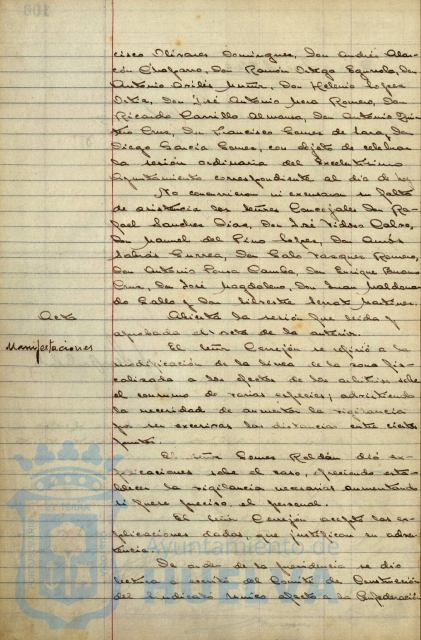 cisco Olivares Dominguez, Don Andrés Alar-
cón Chaparro, Don Ramón Ortega Don
Antonio Avilés Muñoz, Don Helenio Lopez
Ortiz, Don José Antonio Mora Romero, Don
Ricardo Carrillo Almansa, Don Antonio
Cruz, Don Francisco Gomez de Lara, Don
Diego Garcia Gomez, con objeto de celebrar
la sesión ordinaria del Excelentisimo
Ayuntamiento correspondiente al día de hoy
No concurrieron ni excusaron su falta
de asistencia los señores Concejales Don Ra-
fael Sanchez Diaz, Don José Calvo,
Don Manuel del Pino Lopez, Don
Don Galo Vazquez Romero,
Don Antonio Pousa Camba, Don Enrique Bueno
Cruz, Don José Magdaleno, Don Juan Maldona-
do Gallo y Don Silvestre Martinez.
Acta
Abierta la sesión fue leida y
aprobada el acta de la anterior.
Manifestaciones
El señor Cerrejón se refirió a la
modificación de la linea de la zona fis-
calizada a los efectos de los arbitrios sobre
el consumo de varias especies, advirtiendo
la necesidad de aumentar la vigilancia
por ser excesivas las distancias entre ciertos
puntos.
El señor Gomez Roldán dió ex-
plicaciones sobre el caso, ofreciendo esta-
blecer la vigilancia necesaria aumentando
si fuere preciso, el personal.
El señor Cerrejón acepta las ex-
plicaciones dadas, que justifican su adver-
tencia.
De orden de la presidencia se dió
lectura a escrito del Comité de
del Sindicato unico afecto a la Confederación
Ayuntamiento de